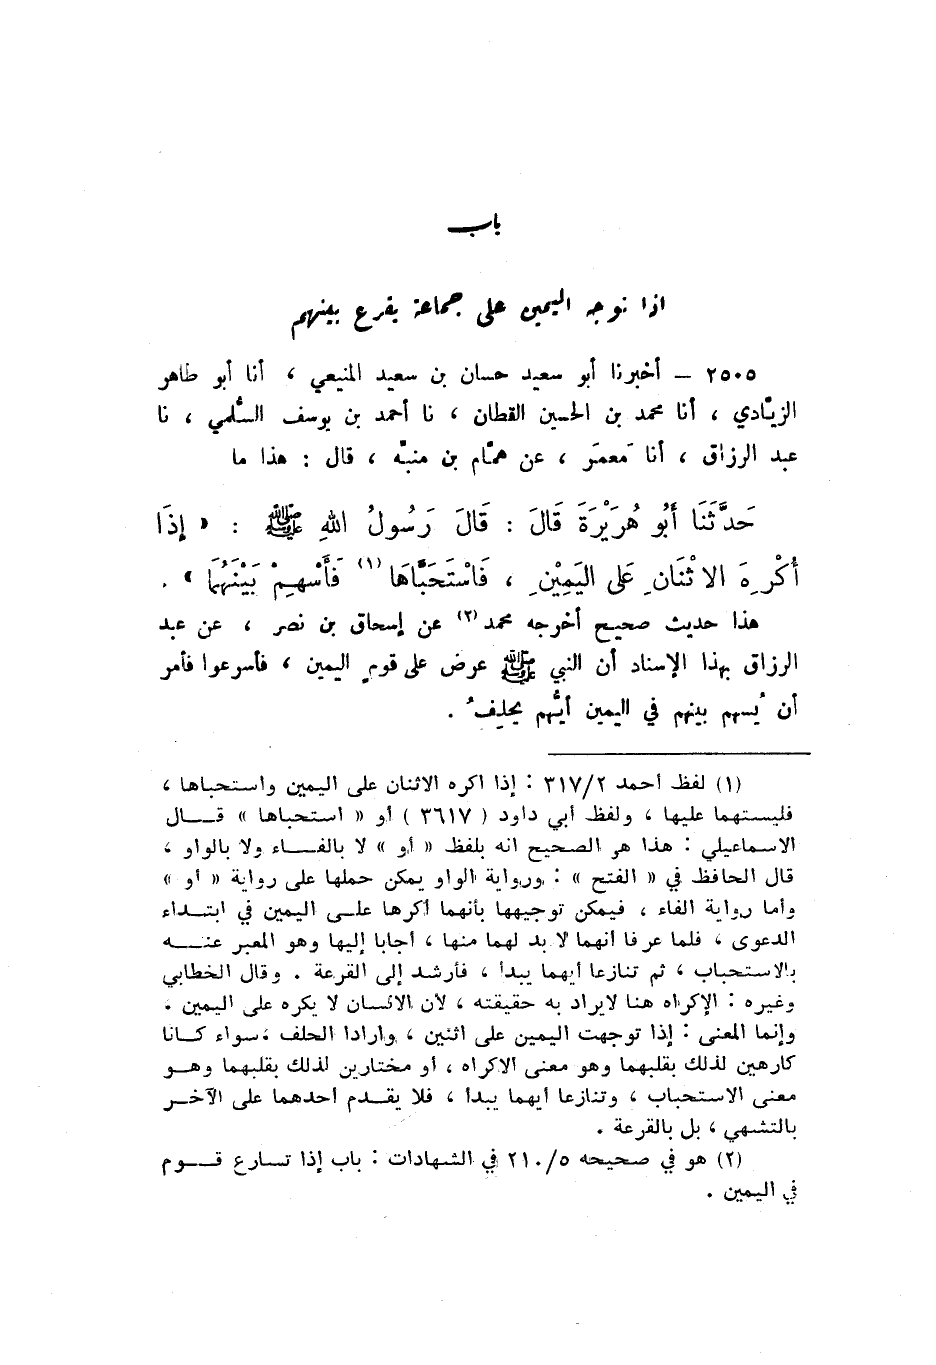 باب
اذا توجه اليمين على جماعة يقرع بينهم
٢٥٠٥ – أخبرنا أبو سعيد حسان بن سعيد المنيعي ، أنا أبو طاهر
الزيّادي ، أنا محمد بن الحسين القطان ، نا أحمد بن يوسف السُّلمي ، نا
عبد الرزاق ، أنا مَعمَر ، عن همّام بن منبّه ، قال : هذا ما
حَدَّثَنَا أَبُو هُرَيْرَةَ قَالَ : قَالَ رَسُولُ اللهِ ﷺ : « إِذَا
أُكْرِهَ الاثْنَانِ عَلى اليَمِيْنِ ، فَاسْتَحَبَّاهَا (١) فَأَسْهِمْ بَيْنَهُمَا » .
هذا حديث صحيح أخرجه محمد (٢) عن إسحاق بن نصر ، عن عبد
الرزاق بهذا الإسناد أن النبي ﷺ عرض على قومٍ اليمين ، فأسرعوا فأمر
أن يُسهم بينهم في اليمين أيُّهم يحلِفُ .
(١) لفظ أحمد ٣١٧/٢ : إذا اكره الاثنان على اليمين واستحباها ،
فليستهما عليها ، ولفظ أبي داود ( ٣٦١٧ ) أو « استحباها » قال
الاسماعيلي : هذا هو الصحيح انه بلفظ « أو » لا بالفاء ولا بالواو ،
قال الحافظ في « الفتح » : ورواية الواو يمكن حملها على رواية « أو »
وأما رواية الفاء ، فيمكن توجيهها بأنهما أكرها على اليمين في ابتداء
الدعوى ، فلما عرفا أنهما لا بد لهما منها ، أجابا إليها وهو المعبر عنه
بالاستحباب ، ثم تنازعا أيهما يبدأ ، فأرشد إلى القرعة . وقال الخطابي
وغيره : الإكراه هنا لايراد به حقيقته ، لأن الانسان لا يكره على اليمين .
وإنما المعنى : إذا توجهت اليمين على اثنين ، وأرادا الحلف ، سواء كانا
كارهين لذلك بقلبهما وهو معنى الاكراه ، أو مختارين لذلك بقلبهما وهو
معنى الاستحباب ، وتنازعا أيهما يبدأ ، فلا يقدم أحدهما على الآخر
بالتشهي ، بل بالقرعة .
(٢) هو في صحيحه ٢١٠/٥ في الشهادات : باب إذا تسارع قوم
في اليمين .